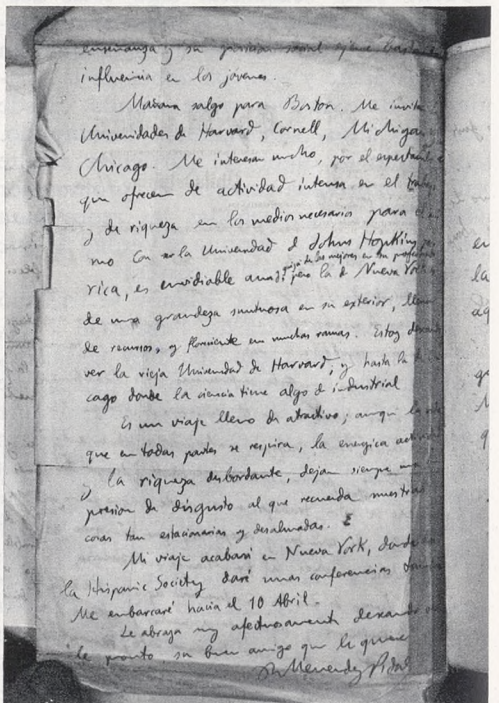 enseñanza y su posicion social ejerce bastante
influencia en los jovenes.
Mañana salgo para Boston. Me invitan
Universidades de Harvard, Cornell, Michigan y
Chicago. Me interesan mucho, por el espectaculo
que ofrecen de actividad intensa en el
y de riqueza en los medios necesarios para el
mo Con ser la Universidad d Johns Hopkins
rica, es envidiable quizá de las mejores en su profesorado
pero la d Nueva York
de una grandeza suntuosa en su exterior, llena
de recursos, y floreciente en muchas ramas. Estoy deseando
ver la vieja Universidad de Harvard, y hasta la
cago donde la ciencia tiene algo d industrial
Es un viaje lleno de atractivo; aunque la
que en todas partes se respira, la energica actividad
y la riqueza desbordante, dejan siempre una
presion de disgusto al que recuerda nuestras
cosas tan estacionarias y desalmadas.
Mi viaje acabará en Nueva York, donde en
la Hispanic Society daré unas conferencias
Me embarcaré hacia el 10 Abril.
Le abraza muy afectuosamente deseando
le pronto su buen amigo que le quiere
R. Menendez Pidal